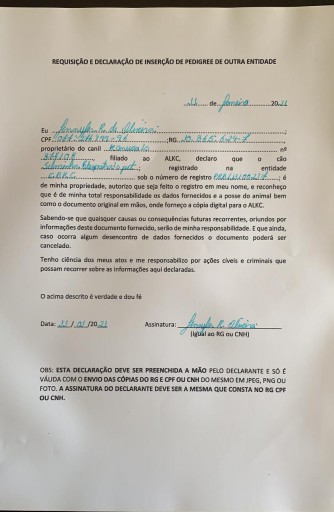 REQUISIÇÃO E DECLARAÇÃO DE INSERÇÃO DE PEDIGREE DE OUTRA ENTIDADE
de Janeiro 20
Eu Jennyfer R. de Oliveira ;
CPF ;RG ;
proprietário do canil nº
, filiado ao ALKC, declaro que o cão
registrado na entidade
sob o número de registro ; é
de minha propriedade, autorizo que seja feito o registro em meu nome, e reconheço
que é de minha total responsabilidade os dados fornecidos e a posse do animal bem
como o documento original em mãos, onde forneço a cópia digital para o ALKC.
Sabendo-se que quaisquer causas ou consequências futuras recorrentes, oriundos por
informações deste documento fornecido, serão de minha responsabilidade. E que ainda,
caso ocorra algum desencontro de dados fornecidos o documento poderá ser
cancelado.
Tenho ciência dos meus atos e me responsabilizo por ações cíveis e criminais que
possam recorrer sobre as informações aqui declaradas.
O acima descrito é verdade e dou fé
Data: Assinatura: Jennyfer R. Oliveira
(Igual ao RG ou CNH)
OBS: ESTA DECLARAÇÃO DEVE SER PREENCHIDA A MÃO PELO DECLARANTE E SÓ É
VÁLIDA COM O ENVIO DAS CÓPIAS DO RG E CPF OU CNH DO MESMO EM JPEG, PNG OU
FOTO. A ASSINATURA DO DECLARANTE DEVE SER A MESMA QUE CONSTA NO RG CPF
OU CNH.